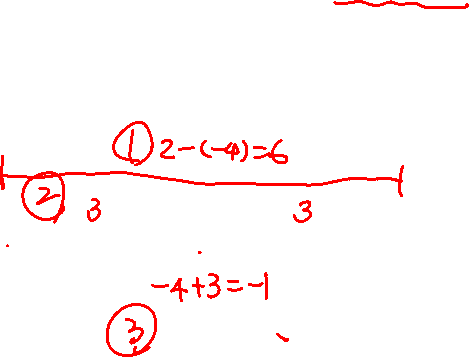 ① 2-(-4)=6
② 3 3
-4+3=-1
③